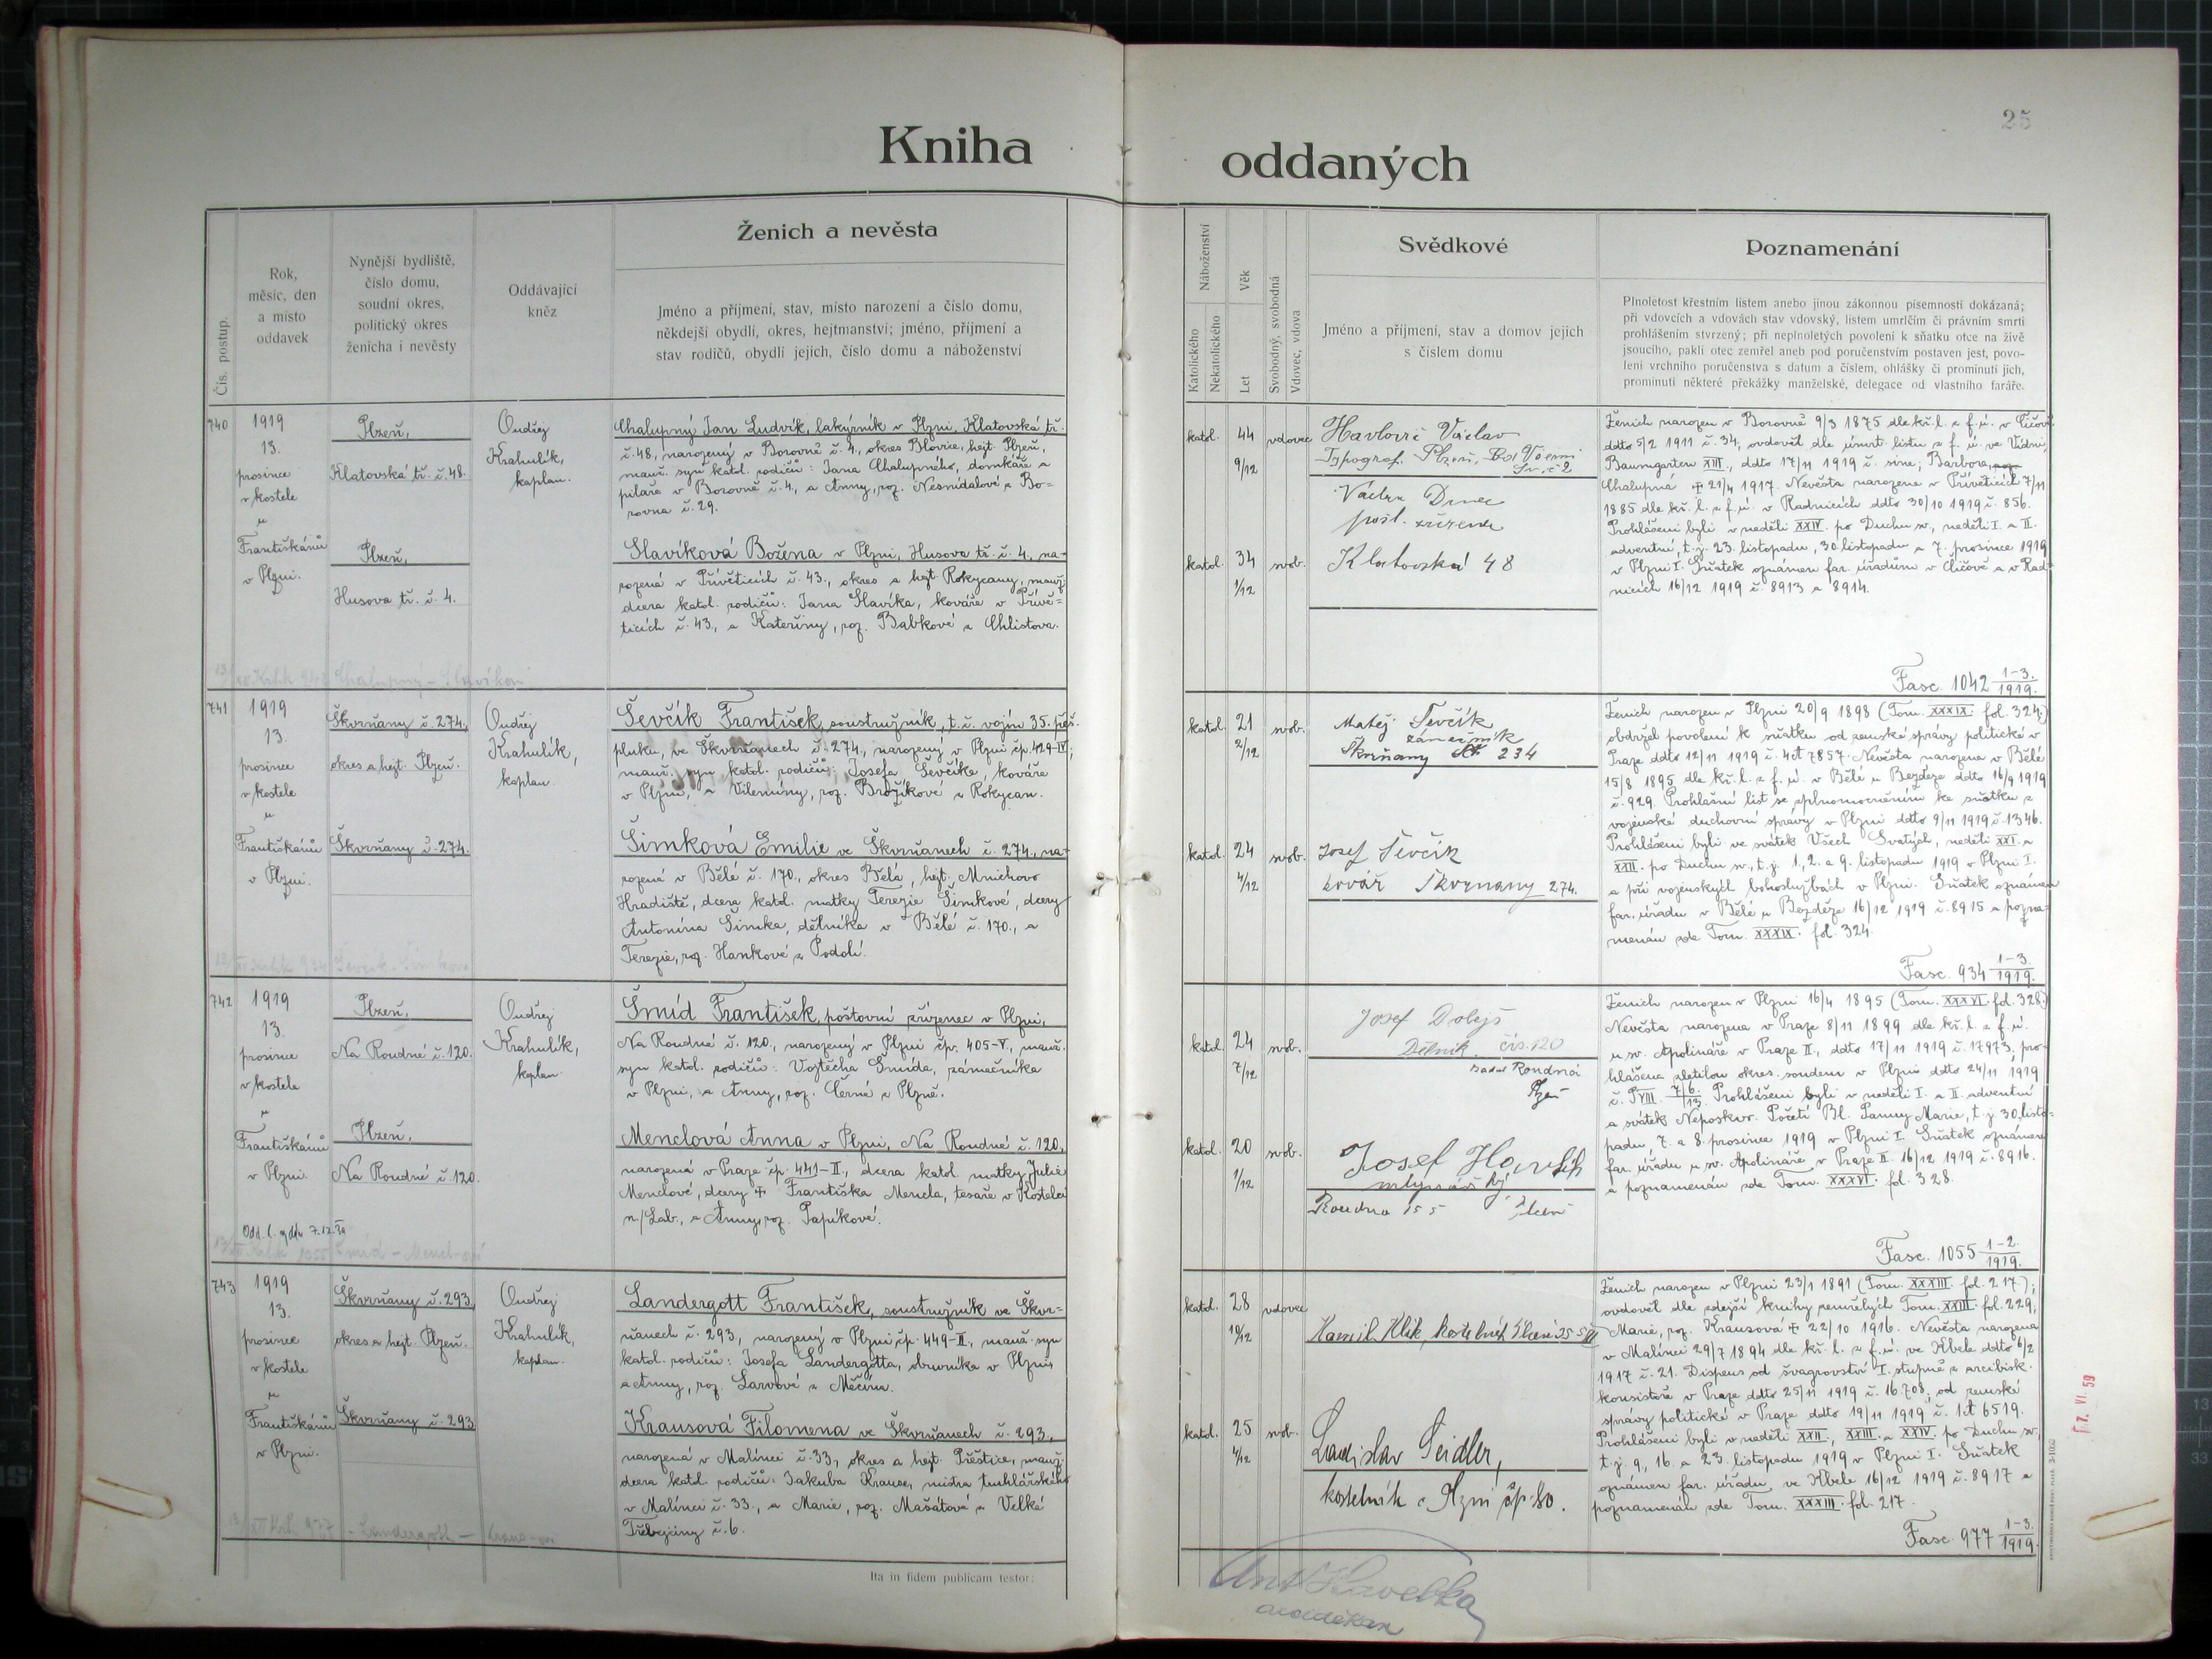 25
Kniha
oddaných
Čís. postup.
Rok,
měsíc, den
a místo
oddavek
Nynější bydliště,
číslo domu,
soudní okres,
politický okres
ženicha i nevěsty
Oddávající
kněz
Ženich a nevěsta
Jméno a příjmení, stav, místo narození a číslo domu,
někdejší obydlí, okres, hejtmanství; jméno, příjmení a
stav rodičů, obydlí jejich, číslo domu a náboženství
Náboženství
Katolického
Nekatolického
Věk
Let
Svobodný, svobodná
Vdovec, vdova
Svědkové
Jméno a příjmení, stav a domov jejich
s číslem domu
Poznamenání
Plnoletost křestním listem anebo jinou zákonnou písemností dokázaná;
při vdovcích a vdovách stav vdovský, listem umrlčím či právním smrti
prohlášením stvrzený; při neplnoletých povolení k sňatku otce na živě
jsoucího, pakli otec zemřel aneb pod poručenstvím postaven jest, povo-
lení vrchního poručenstva s datum a číslem, ohlášky či prominutí jich,
prominutí některé překážky manželské, delegace od vlastního faráře.
740
1919
13.
prosince
v kostele
u
Františkánů
v Plzni.
Plzeň,
Klatovská tř. č. 48.
Plzeň,
Husova tř. č. 4.
Ondřej
Krahulík,
kaplan.
Chalupný Jan Ludvík, lakýrník v Plzni, Klatovská tř.
č. 48, narozený v Borovně č. 4., okres Blovice, hejt. Plzeň,
manž. syn katol. rodičů: Jana Chalupného, domkáře a
pilaře v Borovně č. 4., a Anny, roz. Nesnídalové z Bo-
rovna č. 29.
Slavíková Božena v Plzni, Husova tř. č. 4., na-
rozená v Přívěticích č. 43., okres a hejt. Rokycany, manž.
dcera katol. rodičů: Jana Slavíka, kováře v Přívě-
ticích č. 43., a Kateřiny, roz. Babkové z Chlistova.
Chalupný – Slavíková
katol.
44
9/12
vdovec
katol.
34
1/12
svob.
Václav
Typograf. Plzeň,
Václav
pošt. zřízenec
Klatovská 48
Ženich narozen v Borovně 9/3 1875 dle kř. l. z f. ú. v Číčově
ddto 5/2 1911 č. 34, ovdověl dle úmrt. listu z f. ú. ve Vídni,
Baumgarten XIII., ddto 17/11 1919 č. sine; Barbora
Chalupná ‡ 21/4 1917. Nevěsta narozena v Přívěticích 7/11
1885 dle kř. l. z f. ú. v Radnicích ddto 30/10 1919 č. 856.
Prohlášeni byli v neděli XXIV. po Duchu sv., neděli I. a II.
adventní, t. j. 23. listopadu, 30. listopadu a 7. prosince 1919
v Plzni I. Sňatek oznámen far. úřadům v Číčově a v Rad-
nicích 16/12 1919 č. 8913 a 8914.
Fasc. 1042 1-3./1919.
741
1919
13.
prosince
v kostele
u
Františkánů
v Plzni.
Škvrňany č. 274,
okres a hejt. Plzeň.
Škvrňany č. 274.
Ondřej
Krahulík,
kaplan.
Ševčík František, soustružník, t. č. vojín 35. pěš.
pluku, ve Škvrňanech č. 274., narozený v Plzni čp. 429-IV;
manž. syn katol. rodičů: Josefa Ševčíka, kováře
v Plzni, a Vilemíny, roz. Brožíkové z Rokycan.
Šimková Emilie ve Škvrňanech č. 274., na-
rozená v Bělé č. 170., okres Bělá, hejt. Mnichovo
Hradiště, dcera katol. matky Terezie Šimkové, dcery
Antonína Šimka, dělníka v Bělé č. 170., a
Terezie, roz. Hankové z Podolí.
katol.
21
2/12
svob.
katol.
24
4/12
svob.
Matěj Ševčík
zámečník
Škvrňany 234
Josef Ševčík
kovář Škvrnany 274.
Ženich narozen v Plzni 20/9 1898 (Tom. XXXIX. fol. 324;)
obdržel povolení k sňatku od zemské správy politické v
Praze ddto 12/11 1919 č. 4dt 7857. Nevěsta narozena v Bělé
15/8 1895 dle kř. l. z f. ú. v Bělé u Bezděze ddto 16/9 1919
č. 929. Prohlašní list se zplnomocněním ke sňatku z
vojenské duchovní správy v Plzni ddto 9/11 1919 č. 1346.
Prohlášeni byli ve svátek Všech Svatých, neděli XXI. a
XXII. po Duchu sv., t. j. 1., 2. a 9. listopadu 1919 v Plzni I.
a při vojenských bohoslužbách v Plzni. Sňatek oznámen
far. úřadu v Bělé u Bezděze 16/12 1919 č. 8915 a pozna-
menán zde Tom. XXXIX. fol. 324.
Fasc. 934 1-3/1919.
742
1919
13.
prosince
v kostele
u
Františkánů
v Plzni.
Plzeň,
Na Roudné č. 120.
Plzeň,
Na Roudné č. 120.
Ondřej
Krahulík,
kaplan.
Šmíd František, poštovní zřízenec v Plzni,
Na Roudné č. 120., narozený v Plzni čp. 405-V., manž.
syn katol. rodičů: Vojtěcha Šmída, zámečníka
v Plzni, a Anny, roz. Černé z Plzně.
Menclová Anna v Plzni, Na Roudné č. 120,
narozená v Praze čp. 441-II., dcera katol. matky Julie
Menclové, dcery ‡ Františka Mencla, tesaře v Kostelci
n./Lab., a Anny, roz. Papíkové.
Šmíd –
katol.
24
7/12
svob.
katol.
20
1/12
svob.
Josef Dobejš
Dělník čís. 120
Roudná
Josef
Roudna 155
Ženich narozen v Plzni 16/4 1895 (Tom. XXXVI. fol. 328.)
Nevěsta narozena v Praze 8/11 1899 dle kř. l. z f. ú.
u sv. Apolináře v Praze II., ddto 17/11 1919 č. 17973; pro-
hlášena zletilou okres. soudem v Plzni ddto 24/11 1919
č. P VIII. 7/6./13. Prohlášeni byli v neděli I. a II. adventní
a svátek Neposkvr. Početí Bl. Panny Marie, t. j. 30. listo-
padu, 7. a 8. prosince 1919 v Plzni I. Sňatek oznámen
far. úřadu u sv. Apolináře v Praze II. 16/12 1919 č. 8916.
a poznamenán zde Tom. XXXVI. fol. 328.
Fasc. 1055 1-2./1919.
743
1919
13.
prosince
v kostele
u
Františkánů
v Plzni.
Škvrňany č. 293,
okres a hejt. Plzeň.
Škvrňany č. 293
Ondřej
Krahulík,
kaplan.
Landergott František, soustružník ve Škvr-
ňanech č. 293, narozený v Plzni čp. 449-II., manž. syn
katol. rodičů: Josefa Landergotta, obuvníka v Plzni,
a Anny, roz. Larvové z Měčína.
Krausová Filomena ve Škvrňanech č. 293,
narozená v Malinci č. 33., okres a hejt. Přeštice, manž.
dcera katol. rodičů: Jakuba Krause, mistra truhlářského
v Malinci č. 33., a Marie, roz. Mašátové z Velké
Třebejčiny č. 6.
Landergott –
katol.
28
10/12
vdovec
katol.
25
4/12
svob.
Kamil Klik, kostelník
Ladislav Seidler,
kostelník v Plzni čp. 80.
Ženich narozen v Plzni 23/1 1891 (Tom. XXXIII. fol. 217.);
ovdověl dle zdejší knihy zemřelých Tom. XXIII. fol. 229,
Marie, roz. Krausová ‡ 22/10 1916. Nevěsta narozena
v Malinci 29/7 1894 dle kř. l. z f. ú. ve Kbele ddto 6/2
1917 č. 21. Dispens od švagrovství I. stupně z arcibisk.
konsistoře v Praze ddto 25/11 1919 č. 16.708; od zemské
správy politické v Praze ddto 19/11 1919 č. 1dt 6519.
Prohlášeni byli v neděli XXII., XXIII. a XXIV. po Duchu sv.,
t. j. 9., 16. a 23. listopadu 1919 v Plzni I. Sňatek
oznámen far. úřadu ve Kbele 16/12 1919 č. 8917 a
poznamenán zde Tom. XXXIII. fol. 217.
Fasc. 977 1-3./1919.
Ita in fidem publicam testor:
Ant. Havelka
arciděkan